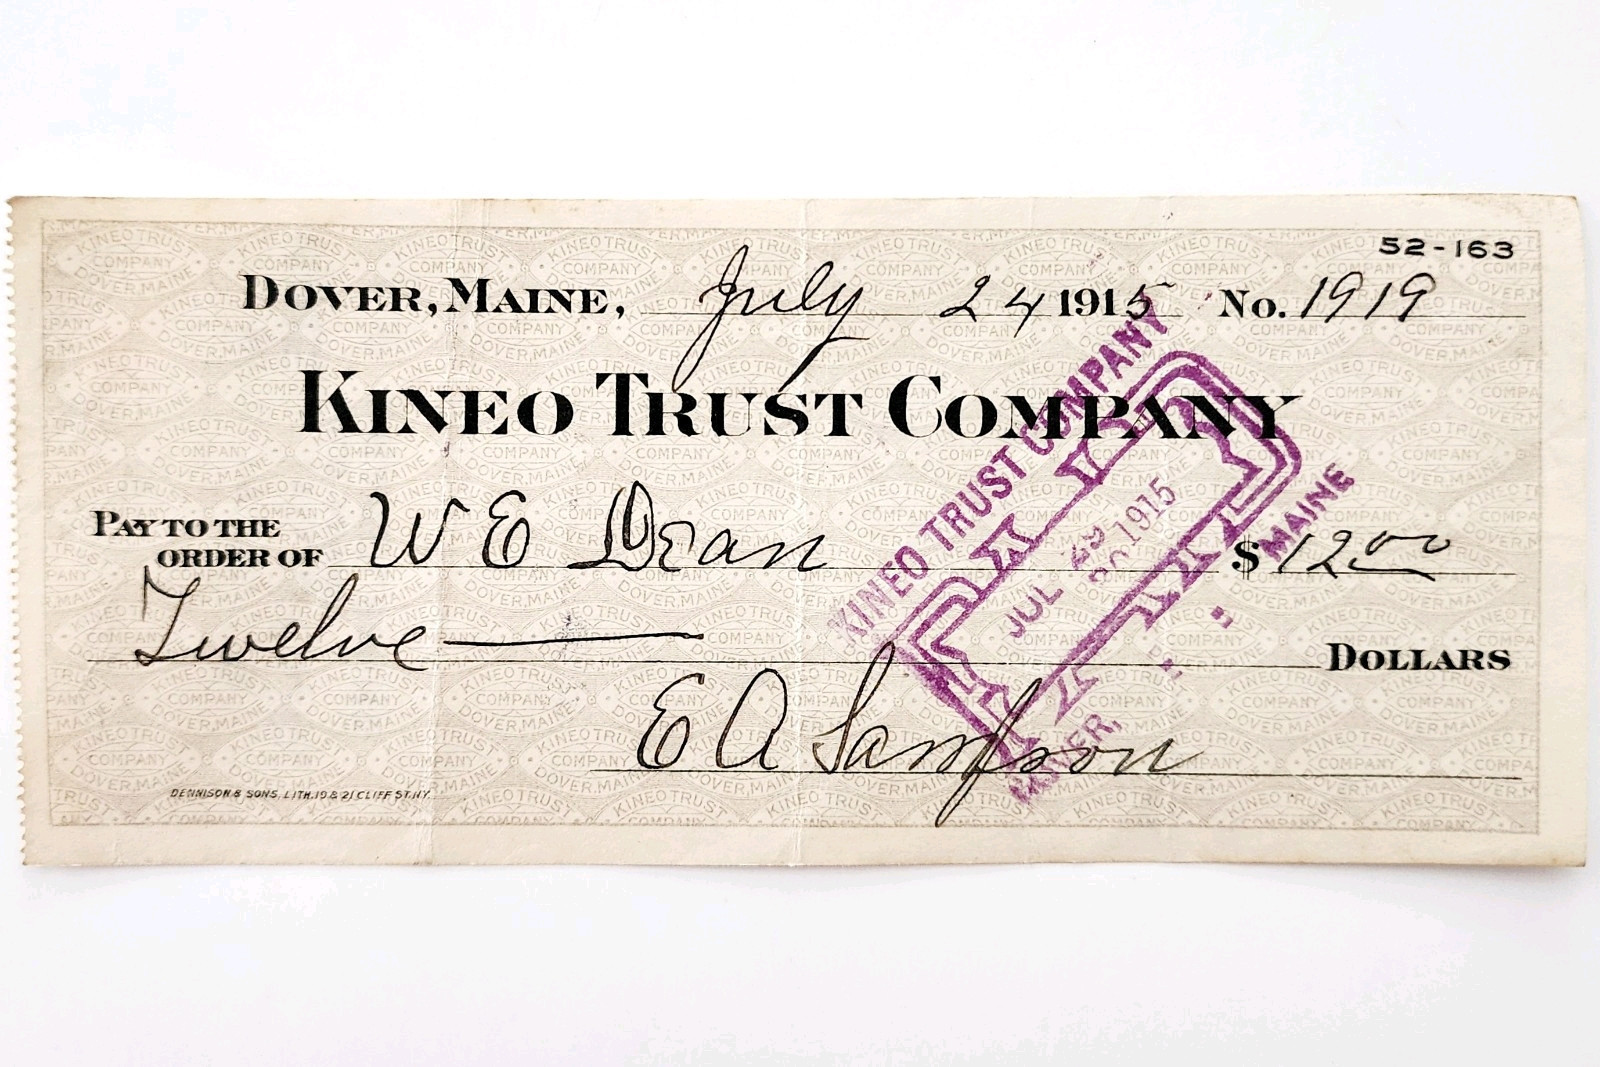 52-163
DOVER, MAINE, July 24 1915 No. 1919
KINEO TRUST COMPANY
PAY TO THE
ORDER OF W E Dean $12 00
Twelve DOLLARS
E A Sampson
DENNISON & SONS, LITH. 19 & 21 CLIFF ST. N.Y.
KINEO TRUST COMPANY
PAID
JUL 29 1915
DOVER, MAINE